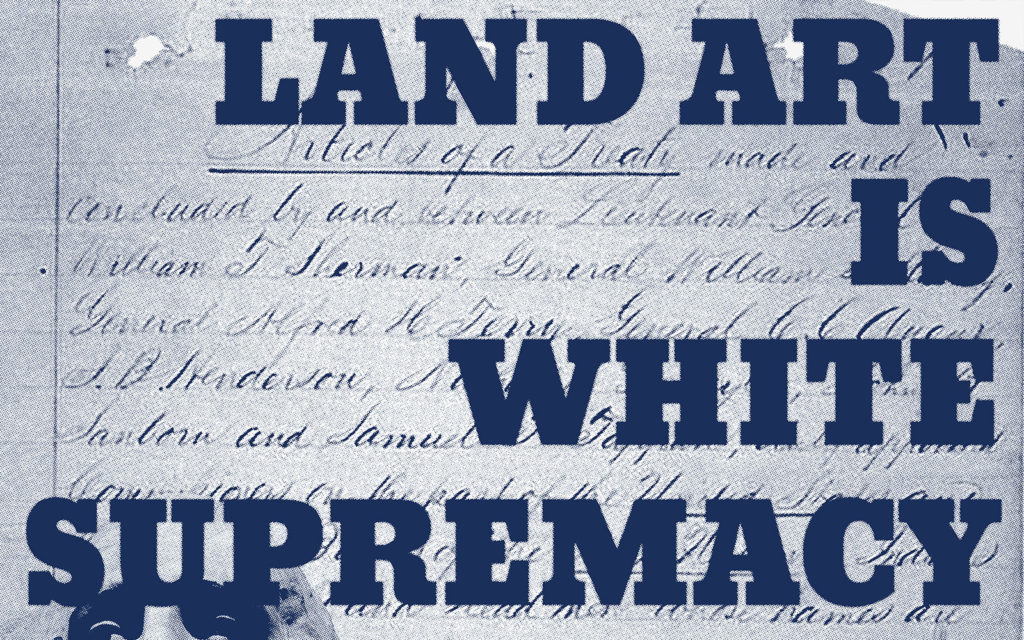 LAND ART
IS
WHITE
SUPREMACY
Articles of a Treaty made and
concluded by and between Lieutenant General
William T. Sherman, General William S.
General Alfred H. Terry, General C. C. Augur,
J. B. Henderson,
Sanborn and Samuel appointed
Commissioners on the part of the United States and
Indians
and Head men whose names are